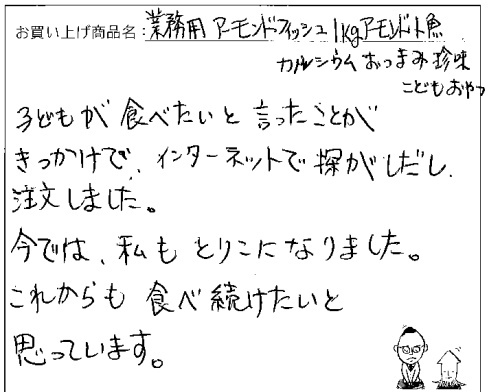 お買い上げ商品名：業務用 アーモンドフィッシュ 1kg アーモンド小魚
カルシウム おつまみ 珍味
こどもおやつ
子どもが 食べたいと 言ったことが
きっかけで、インターネットで 探がしだし、
注文しました。
今では、私も とりこになりました。
これからも 食べ続けたいと
思っています。